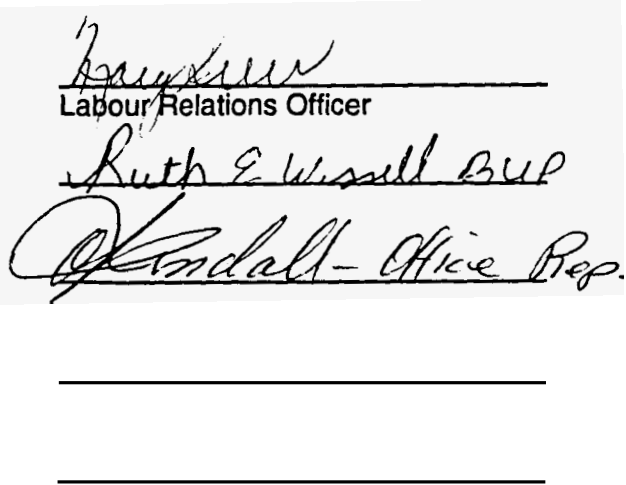 Labour Relations Officer
Ruth E Wissell BUP
Kendall - Office Rep.